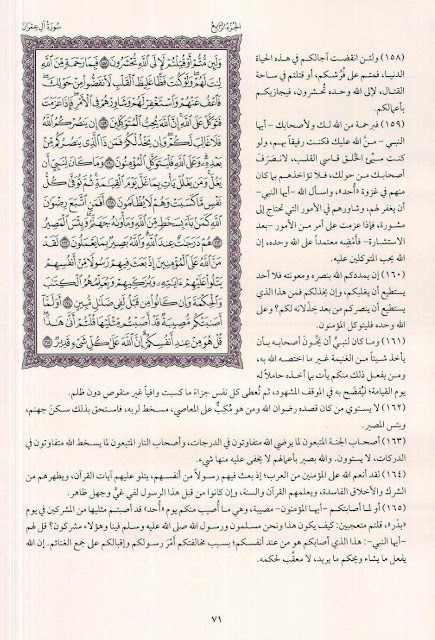 الجزء الرابع
سورة آل عمران
وَلَئِن مُّتُّمْ أَوْ قُتِلْتُمْ لَإِلَى ٱللَّهِ تُحْشَرُونَ ۝ فَبِمَا رَحْمَةٍ مِّنَ ٱللَّهِ
لِنتَ لَهُمْ وَلَوْ كُنتَ فَظًّا غَلِيظَ ٱلْقَلْبِ لَٱنفَضُّوا۟ مِنْ حَوْلِكَ
فَٱعْفُ عَنْهُمْ وَٱسْتَغْفِرْ لَهُمْ وَشَاوِرْهُمْ فِى ٱلْأَمْرِ فَإِذَا عَزَمْتَ
فَتَوَكَّلْ عَلَى ٱللَّهِ إِنَّ ٱللَّهَ يُحِبُّ ٱلْمُتَوَكِّلِينَ ۝ إِن يَنصُرْكُمُ ٱللَّهُ
فَلَا غَالِبَ لَكُمْ وَإِن يَخْذُلْكُمْ فَمَن ذَا ٱلَّذِى يَنصُرُكُم مِّنۢ
بَعْدِهِۦ وَعَلَى ٱللَّهِ فَلْيَتَوَكَّلِ ٱلْمُؤْمِنُونَ ۝ وَمَا كَانَ لِنَبِىٍّ أَن
يَغُلَّ وَمَن يَغْلُلْ يَأْتِ بِمَا غَلَّ يَوْمَ ٱلْقِيَٰمَةِ ثُمَّ تُوَفَّىٰ كُلُّ
نَفْسٍ مَّا كَسَبَتْ وَهُمْ لَا يُظْلَمُونَ ۝ أَفَمَنِ ٱتَّبَعَ رِضْوَٰنَ
ٱللَّهِ كَمَنۢ بَآءَ بِسَخَطٍ مِّنَ ٱللَّهِ وَمَأْوَىٰهُ جَهَنَّمُ وَبِئْسَ ٱلْمَصِيرُ
۝ هُمْ دَرَجَٰتٌ عِندَ ٱللَّهِ وَٱللَّهُ بَصِيرٌۢ بِمَا يَعْمَلُونَ ۝ لَقَدْ
مَنَّ ٱللَّهُ عَلَى ٱلْمُؤْمِنِينَ إِذْ بَعَثَ فِيهِمْ رَسُولًا مِّنْ أَنفُسِهِمْ
يَتْلُوا۟ عَلَيْهِمْ ءَايَٰتِهِۦ وَيُزَكِّيهِمْ وَيُعَلِّمُهُمُ ٱلْكِتَٰبَ
وَٱلْحِكْمَةَ وَإِن كَانُوا۟ مِن قَبْلُ لَفِى ضَلَٰلٍ مُّبِينٍ ۝ أَوَلَمَّآ
أَصَٰبَتْكُم مُّصِيبَةٌ قَدْ أَصَبْتُم مِّثْلَيْهَا قُلْتُمْ أَنَّىٰ هَٰذَا
قُلْ هُوَ مِنْ عِندِ أَنفُسِكُمْ إِنَّ ٱللَّهَ عَلَىٰ كُلِّ شَىْءٍ قَدِيرٌ ۝
(١٥٨) ولئن انقضت آجالكم في هذه الحياة
الدنيا، فمتم على فُرُشكم، أو قتلتم في ساحة
القتال، لإلى الله وحده تُحشرون، فيجازيكم
بأعمالكم.
(١٥٩) فبرحمة من الله لك ولأصحابك -أيها
النبي- مَنَّ الله عليك فكنت رفيقاً بهم، ولو
كنت سيِّئ الخُلق قاسي القلب، لانْصَرَفَ
أصحابك من حولك، فلا تؤاخذهم بما كان
منهم في غزوة «أُحد»، واسأل الله -أيها النبي-
أن يغفر لهم، وشاورهم في الأمور التي تحتاج إلى
مشورة، فإذا عزمت على أمر من الأمور -بعد
الاستشارة- فأَمْضِه معتمداً على الله وحده، إن
الله يحب المتوكلين عليه.
(١٦٠) إن يمددكم الله بنصره ومعونته فلا أحد
يستطيع أن يغلبكم، وإن يخذلكم فمن هذا الذي
يستطيع أن ينصركم من بعد خِذْلانه لكم؟ وعلى
الله وحده فليتوكل المؤمنون.
(١٦١) وما كان لنبيٍّ أن يَخُونَ أصحابه بأن
يأخذ شيئاً من الغنيمة غير ما اختصه الله به،
ومن يفعل ذلك منكم يأت بما أخذه حاملاً له
يوم القيامة؛ ليُفضَح به في الموقف المشهود، ثم تُعطى كل نفس جزاءَ ما كسبت وافياً غير منقوص دون ظلم.
(١٦٢) لا يستوي من كان قصده رضوان الله ومن هو مُكِبٌّ على المعاصي، مسخط لربه، فاستحق بذلك سكنَ جهنم، وبئس المصير.
(١٦٣) أصحاب الجنة المتبعون لما يرضي الله متفاوتون في الدرجات، وأصحاب النار المتبعون لما يسخط الله متفاوتون في
الدركات، لا يستوون. والله بصير بأعمالهم لا يخفى عليه منها شيء.
(١٦٤) لقد أنعم الله على المؤمنين من العرب؛ إذ بعث فيهم رسولاً من أنفسهم، يتلو عليهم آيات القرآن، ويطهرهم من
الشرك والأخلاق الفاسدة، ويعلمهم القرآن والسنة، وإن كانوا من قبل هذا الرسول لفي غيٍّ وجهل ظاهر.
(١٦٥) أو لما أصابتكم -أيها المؤمنون- مصيبة، وهي ما أُصيب منكم يوم «أُحد» قد أصبتم مثليها من المشركين في يوم
«بدْر»، قلتم متعجبين: كيف يكون هذا ونحن مسلمون ورسول الله صلى الله عليه وسلم فينا وهؤلاء مشركون؟ قل لهم
-أيها النبي-: هذا الذي أصابكم هو من عند أنفسكم؛ بسبب مخالفتكم أَمْرَ رسولكم وإقبالكم على جمع الغنائم. إن الله
يفعل ما يشاء ويحكم ما يريد، لا معقِّب لحكمه.
٧١